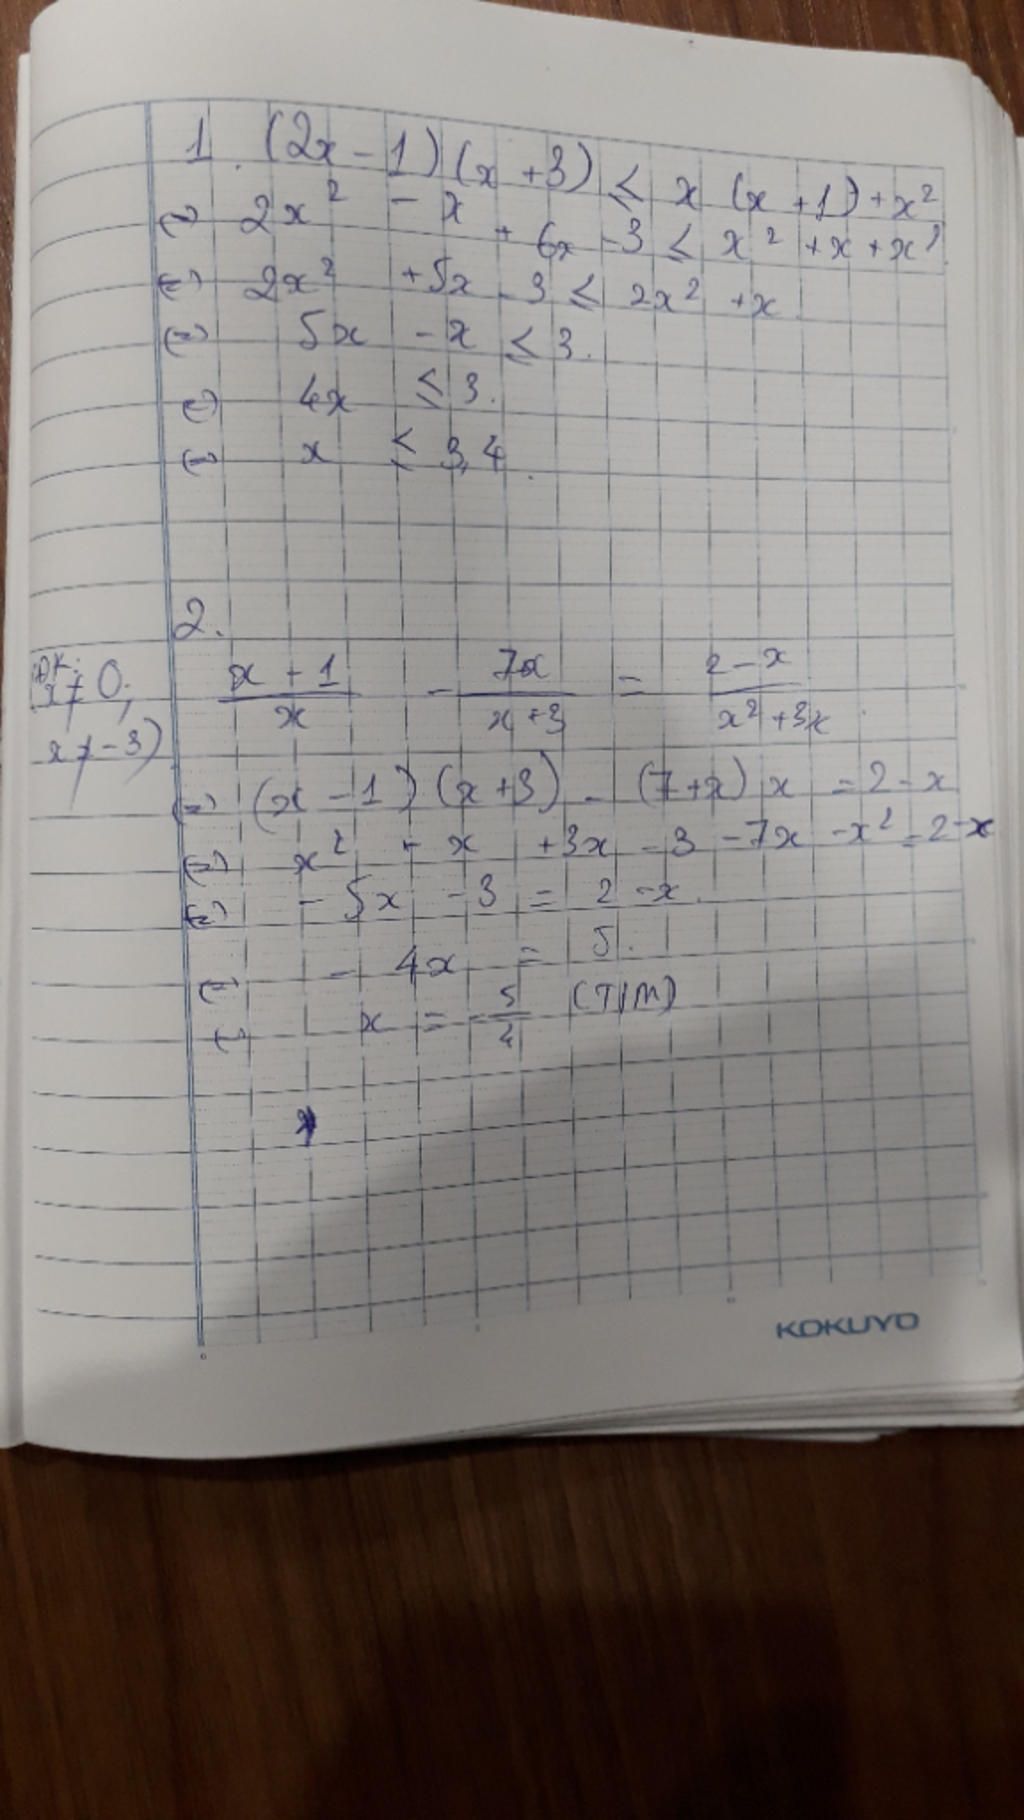 1. (2x - 1)(x + 3) ≤ x (x + 1) + x²
⇔ 2x² - x + 6x - 3 ≤ x² + x + x²
⇔ 2x² + 5x - 3 ≤ 2x² + x
⇔ 5x - x ≤ 3.
⇔ 4x ≤ 3.
⇔ x ≤ 3,4.
2.
(ĐK: x ≠ 0; x ≠ -3)
(x + 1)/x - 7x/(x + 3) = (2 - x)/(x² + 3x)
⇔ (x - 1)(x + 3) - (7 + x) x = 2 - x
⇔ x² - x + 3x - 3 - 7x - x² = 2 - x
⇔ - 5x - 3 = 2 - x.
⇔ - 4x = 5.
⇔ x = -5/4 (T/M)
KOKUYO